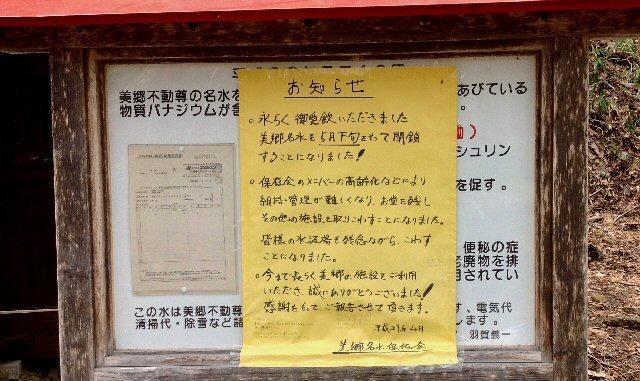 お知らせ
美郷不動尊の名水を
物質バナジウムが含
あびている
シュリン
を促す。
便秘の症
老廃物を排
用されてい
○永らく御愛飲いただきました
美郷名水を5月下旬をもって閉鎖
することになりました!
○保存会のメンバーの高齢化などにより
維持・管理が難しくなり、お堂を残し
その他の施設を取りこわすことになりました。
皆様の水汲場も残念ながら、こわす
ことになりました。
○今まで長らく美郷の施設をご利用
いただき、誠にありがとうございました!
感謝をもって、ご報告させて頂きます。
平成21年4月
美郷名水保存会
この水は美郷不動尊
清掃代・除雪など諸
す、電気代
します。
羽賀義一